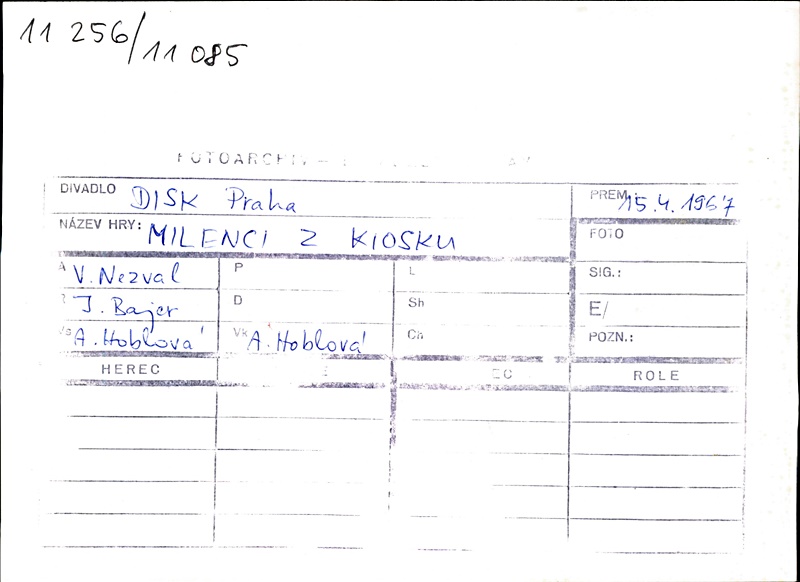 11 256/11 085
FOTOARCHIV –
DIVADLO DISK Praha PREM. 15.4.1967
NÁZEV HRY: MILENCI Z KIOSKU FOTO
A V. Nezval P L SIG.:
J. Bajer D Sh E/
Vs A. Hoblová Vk A. Hoblová Ch POZN.:
HEREC ROLE